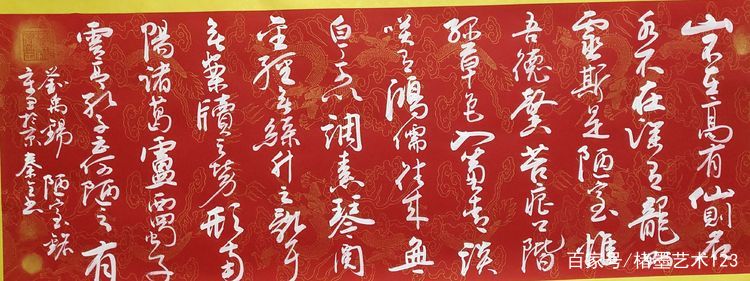 山不在高有仙則名
水不在深有龍則
靈斯是陋室惟
吾德馨苔痕上階
綠草色入簾青談
笑有鴻儒往来無
白丁可以調素琴閱
金經無絲竹之亂耳
無案牘之勞形南
陽諸葛廬西蜀子
雲亭孔子云何陋之有
劉禹錫 陋室銘
辛丑於京 秦 書
百家号/楮墨艺术123